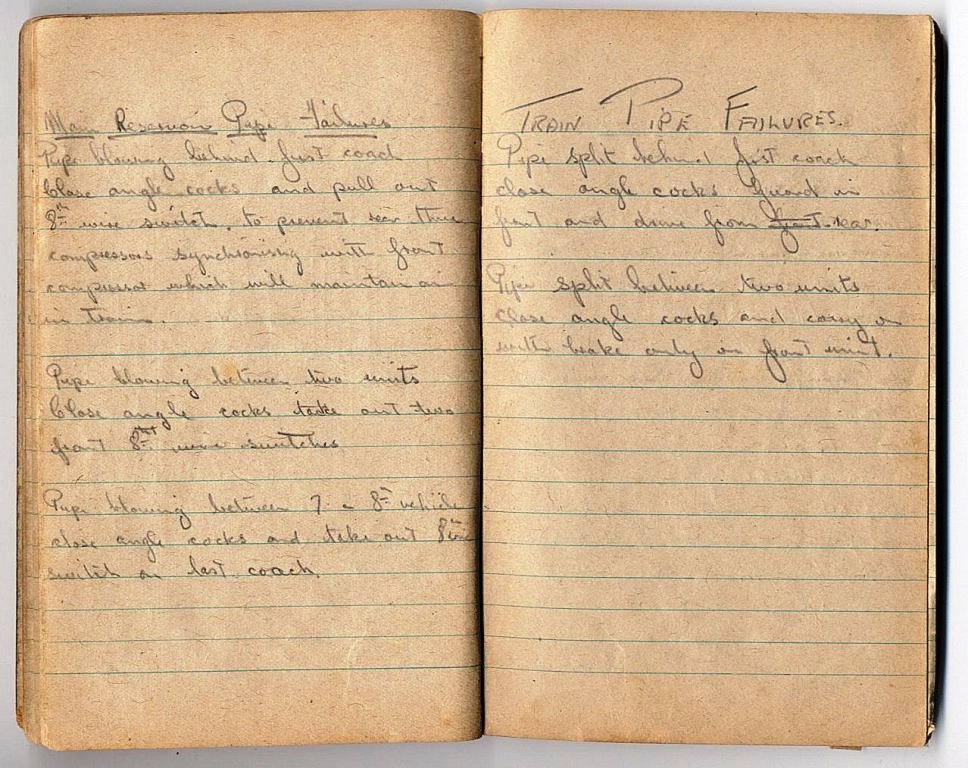 Main Reservoir Pipe Failures
Pipe blowing behind first coach
Close angle cocks and pull out
8th wire switch, to prevent rear three
compressors synchronising with front
compressor which will maintain air
in train.
Pipe blowing between two units
Close angle cocks take out two
front 8th wire switches
Pipe blowing between 7 - 8th vehicle
close angle cocks and take out 8th wire
switch on last coach.
TRAIN PIPE FAILURES.
Pipe split behind first coach
close angle cocks Guard in
front and drive from front rear.
Pipe split between two units
Close angle cocks and carry on
with brake only on front unit.